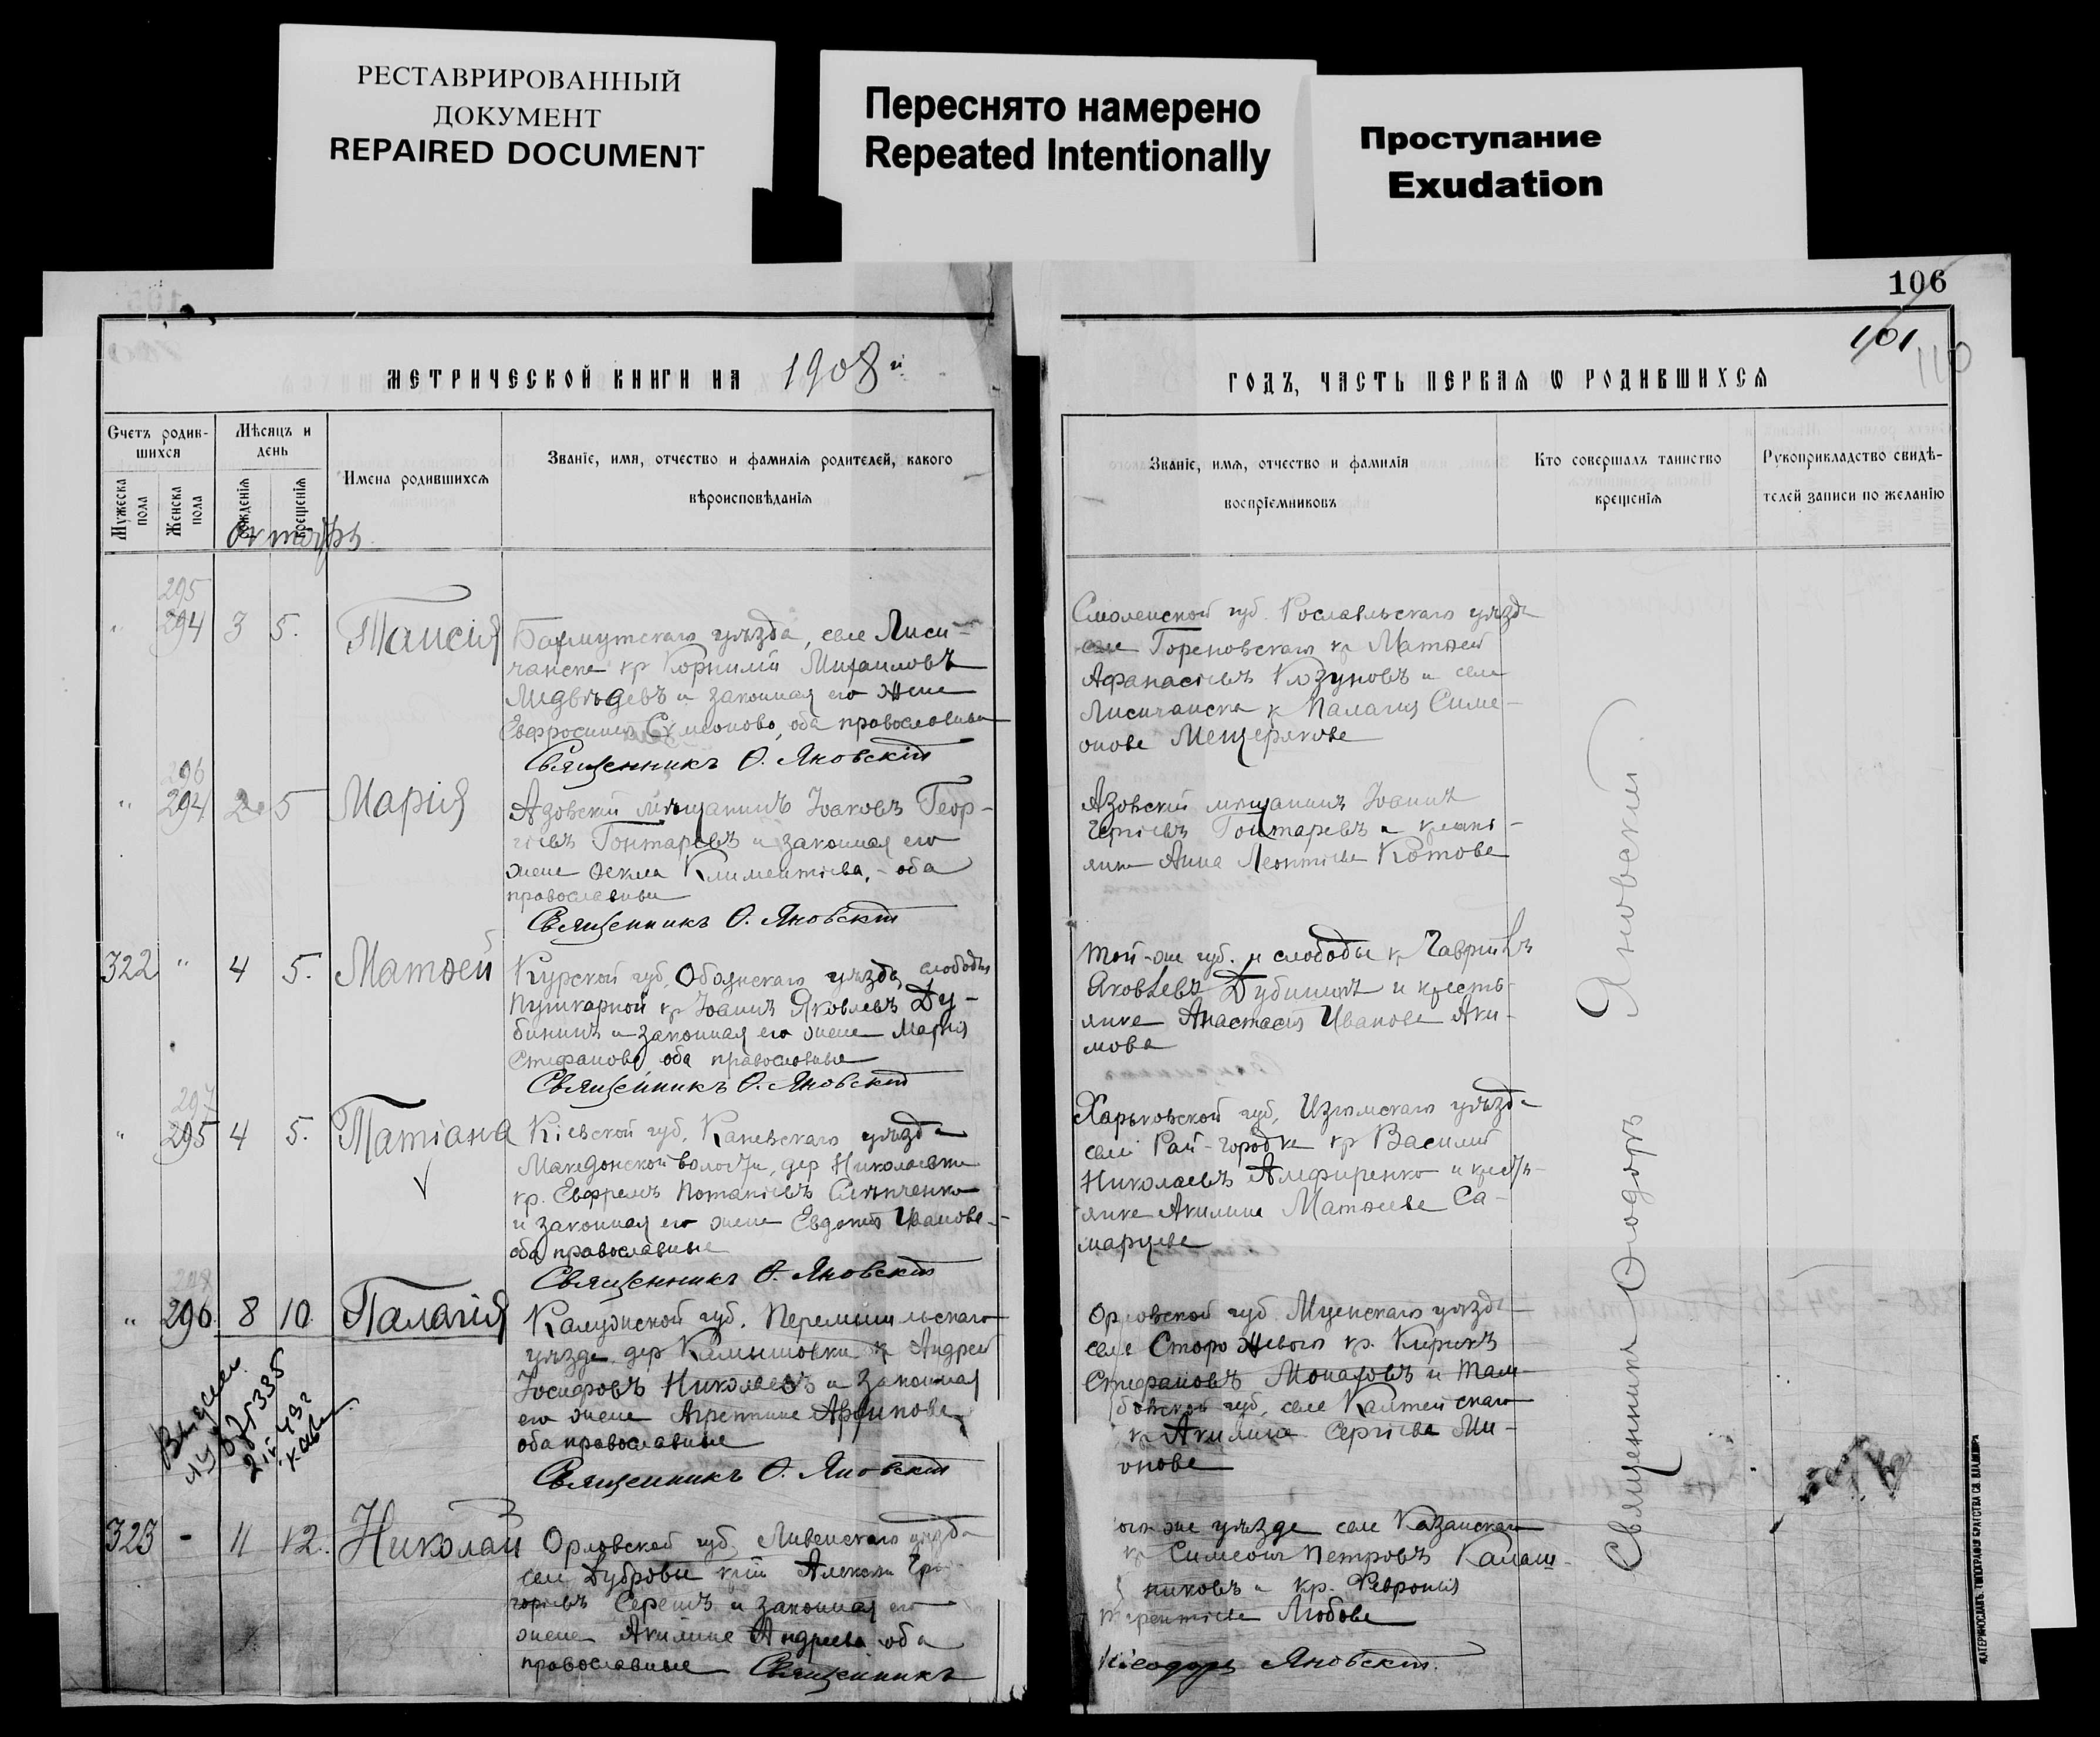 РЕСТАВРИРОВАННЫЙ
ДОКУМЕНТ
REPAIRED DOCUMENT
Переснято намерено
Repeated Intentionally
Проступание
Exudation
106
101
110
МЕТРИЧЕСКОЙ КНИГИ НА 1908 й
ГОДЪ, ЧАСТЬ ПЕРВАЯ Ѡ РОДИВШИХСЯ
Счетъ родив-
шихся
Мужеска пола
Женска пола
Мѣсяцъ и
день
рожденія
крещенія
Имена родившихся
Званіе, имя, отчество и фамилія родителей, какого
вѣроисповѣданія
Званіе, имя, отчество и фамилія
воспріемниковъ
Кто совершалъ таинство
крещенія
Рукоприкладство свидѣ-
телей записи по желанію
Октябрь
295
" 294 3 5. Таисія
Бахмутскаго уѣзда, села Лиси-
чанска кр Корнилій Михаиловъ
Медвѣдевъ и законная его жена
Евфросинія Симеонова, оба православные
Священникъ Ѳ. Яновскій
Смоленской губ. Рославльскаго уѣзда
села Гореновскаго кр Матѳей
Афанасіевъ Козуновъ и села
Лисичанска к Палагія Симе-
онова Мещерякова
296
" 294 2 5 Марія
Азовскій мѣщанинъ Іоаковъ Геор-
гіевъ Гонтаревъ и законная его
жена Ѳекла Климентіева, - оба
православные
Священникъ Ѳ. Яновскій
Азовскій мѣщанинъ Іоаннъ
Гонтаревъ и крестьянка
Анна Леонтіева Котова
322 " 4 5. Матѳей
Курской губ, Обоянскаго уѣзда слободы
Пушкарной кр Іоаннъ Яковлевъ Ду-
бининъ и законная его жена Марія
Стефанова оба православные
Священникъ Ѳ. Яновскій
Той-же губ. и слободы к Гавріилъ
Яковлевъ Дубининъ и кресть-
янка Анастасія Иванова Аки-
мова
297
" 295 4 5. Татіана
Кіевской губ, Каневскаго уѣзда
Македонской волости, дер Николаевки
кр. Евфремъ Потапіевъ
и законная его жена Евдокія Иванова -
оба православные
Священникъ Ѳ. Яновскій
Харьковской губ, Изюмскаго уѣзда
села Рай-городка кр Василій
Николаевъ Алефиренко и кресть-
янка Акилина Матѳеева Са-
марцева
298
" 296. 8 10. Палагія
Калужской губ. Перемышльскаго
уѣзда, дер Камышовки к Андрей
Іосифовъ Николаевъ и законная
его жена Агриппина Архипова
оба православные
Священникъ Ѳ. Яновскій
Орловской губ Мценскаго уѣзда
села Сторожеваго кр. Кирикъ
Стефановъ Монаховъ и Там-
бовской губ, села
кр Акилина Сергіева Ми-
онова
323 - 11 12. Николай
Орловской губ, Ливенскаго уѣзда
села Дубровы Алексій
Серегинъ и законная его
жена Акилина Андреева оба
православные Священникъ
уѣзда села Казанскаго
кр Симеонъ Петровъ Калаш-
никовъ и кр. Февронія
Терентіева Любова
Ѳеодоръ Яновскій.
Священникъ Ѳеодоръ Яновскій.